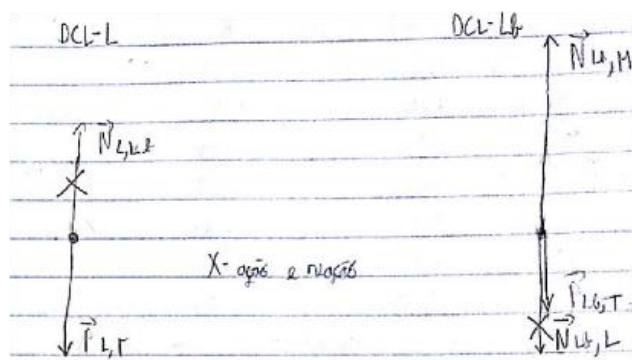 DCL-L
DCL-Lb
N Lb,M
N L,Lb
X- ação e reação
P L,T
P Lb,T
N Lb,L